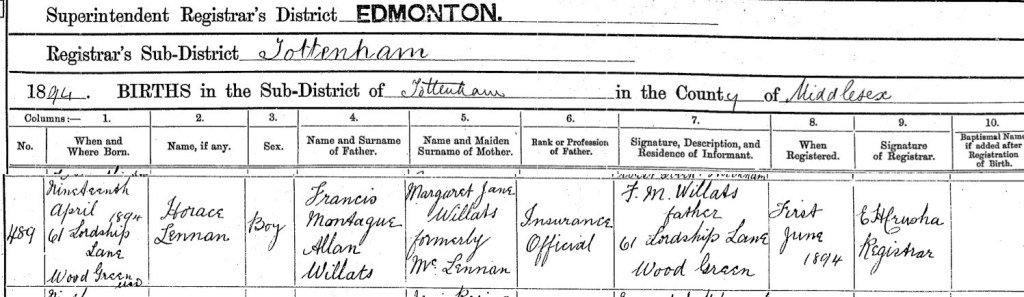 Superintendent Registrar's District EDMONTON.
Registrar's Sub-District Tottenham
1894. BIRTHS in the Sub-District of Tottenham in the County of Middlesex
Columns:— 1. 2. 3. 4. 5. 6. 7. 8. 9. 10.
No. When and Where Born. Name, if any. Sex. Name and Surname of Father. Name and Maiden Surname of Mother. Rank or Profession of Father. Signature, Description, and Residence of Informant. When Registered. Signature of Registrar. Baptismal Name if added after Registration of Birth.
489
Nineteenth
April 1894
61 Lordship
Lane
Wood Green
Horace
Lennan
Boy
Francis
Montague
Allan
Willats
Margaret Jane
Willats
formerly
Mc Lennan
Insurance
Official
F. M. Willats
father
61 Lordship Lane
Wood Green
First
June
1894
Registrar